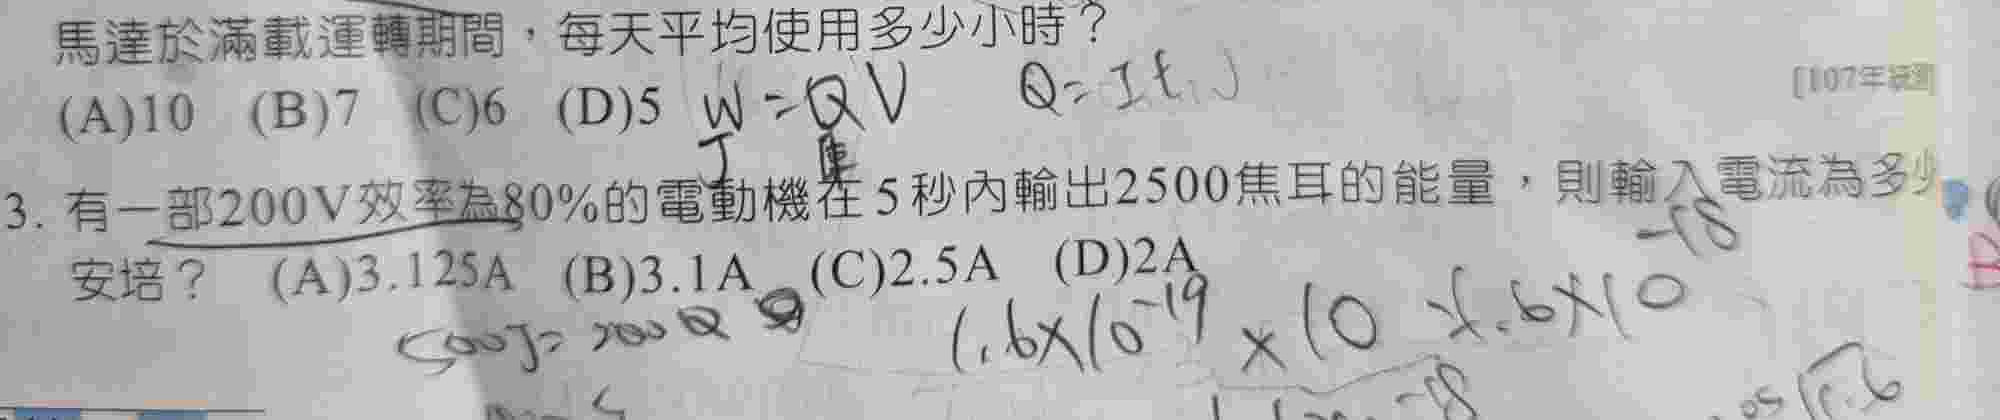 馬達於滿載運轉期間，每天平均使用多少小時？
[107年統測]
(A)10 (B)7 (C)6 (D)5 W=QV Q=It
J 庫
3. 有一部200V效率為80%的電動機在5秒內輸出2500焦耳的能量，則輸入電流為多少
安培？ (A)3.125A (B)3.1A (C)2.5A (D)2A
-18
500J=200Q 1.6x10-19 x10 1.6x10
-18